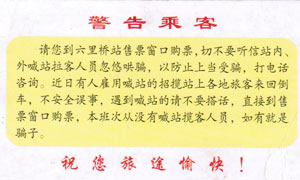 警告乘客
请您到六里桥站售票窗口购票，切不要听信站内、
外喊站拉客人员忽悠哄骗，以防止上当受骗，打电话
咨询。近日有人雇用喊站的招揽站上各地旅客来回倒
车，不安全误事，遇到喊站的请不要搭话，直接到售
票窗口购票，本班次从没有喊站揽客人员，如有就是
骗子。
祝您旅途愉快！